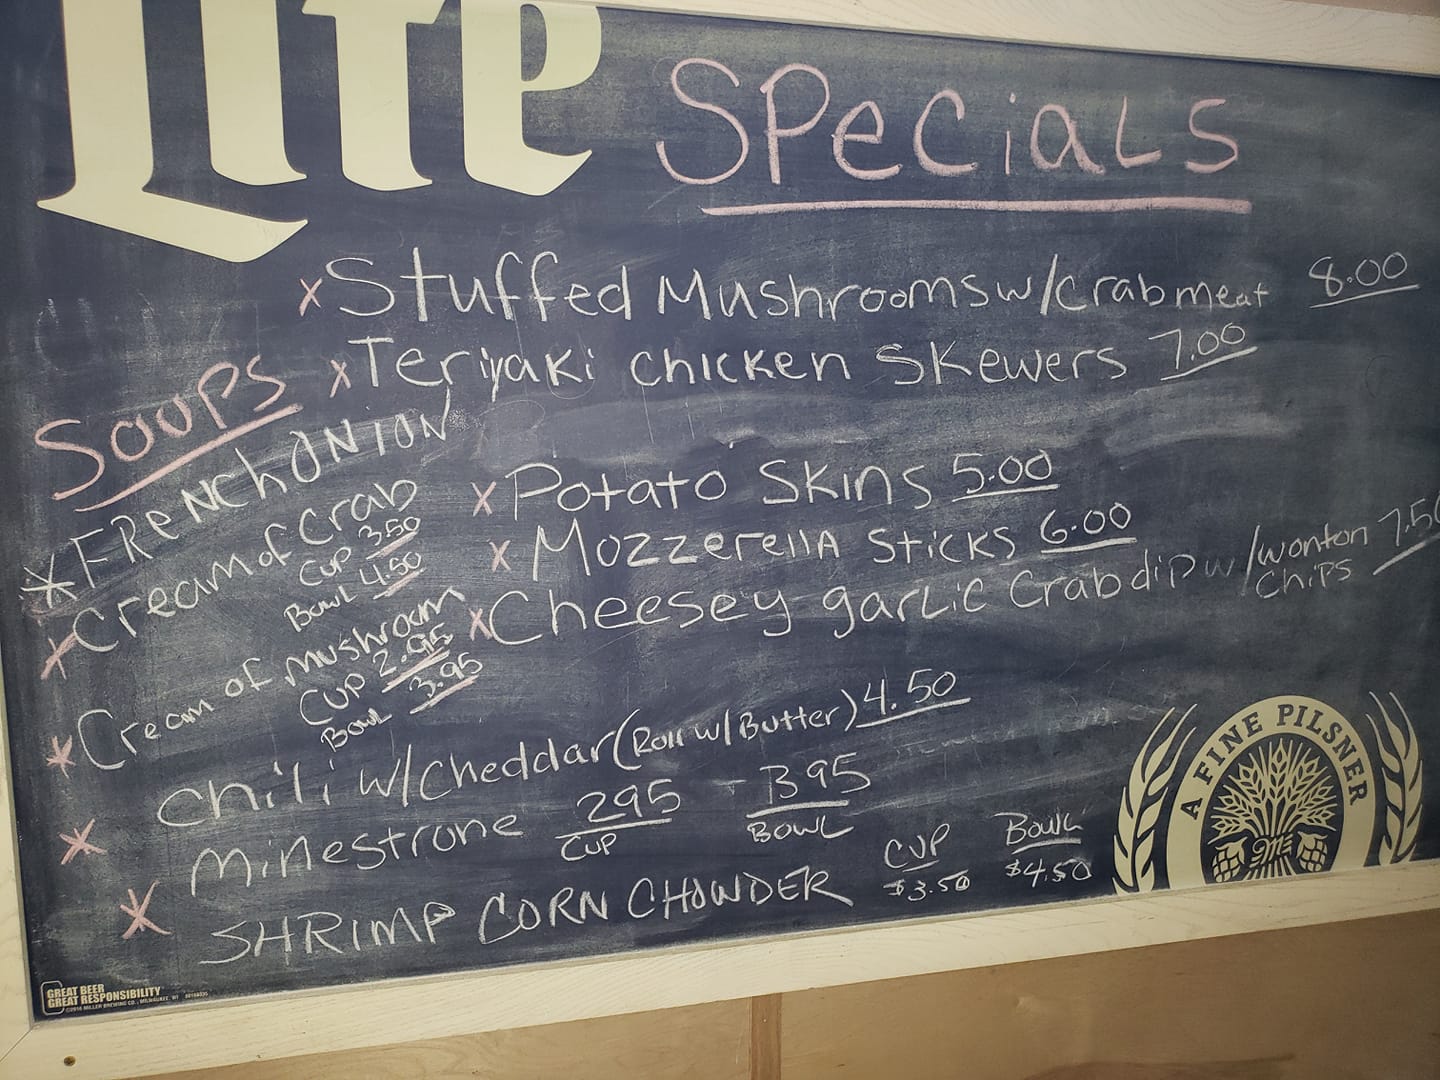 Lite
Specials
x Stuffed Mushrooms w/crabmeat 8.00
x Teriyaki chicken Skewers 7.00
Soups
* FRENCh ONION
x Cream of Crab
CUP 3.50
Bowl 4.50
* Cream of mushroom
CUP 2.95
Bowl 3.95
x Potato Skins 5.00
x Mozzerella Sticks 6.00
x Cheesey garlic Crab dip w/wonton Chips 7.50
* Chili w/Cheddar (Roll w/Butter) 4.50
* Minestrone 295 CUP - 395 BOWL
SHRIMP CORN CHOWDER CUP $3.50 Bowl $4.50
A FINE PILSNER
GREAT BEER
GREAT RESPONSIBILITY
©2016 MILLER BREWING CO., MILWAUKEE, WI